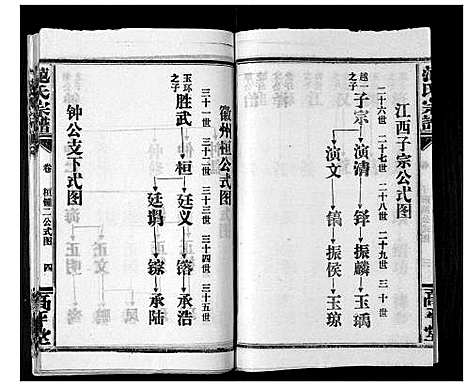 江西子宗公式图
二十六世 二十七世 二十八世 二十九世 三十世
越一之子
子宗 演清 铎 振麟 玉瑀
演文 镐 振侯 玉琼
徽州桓公式图
三十一世 三十二世 三十三世 三十四世 三十五世
玉环之子
胜武 桓 廷义 镕 承浩
廷瑁 镓 承陆
钟公支下式图
范氏宗谱
卷 桓锺二公式图 四
高平堂